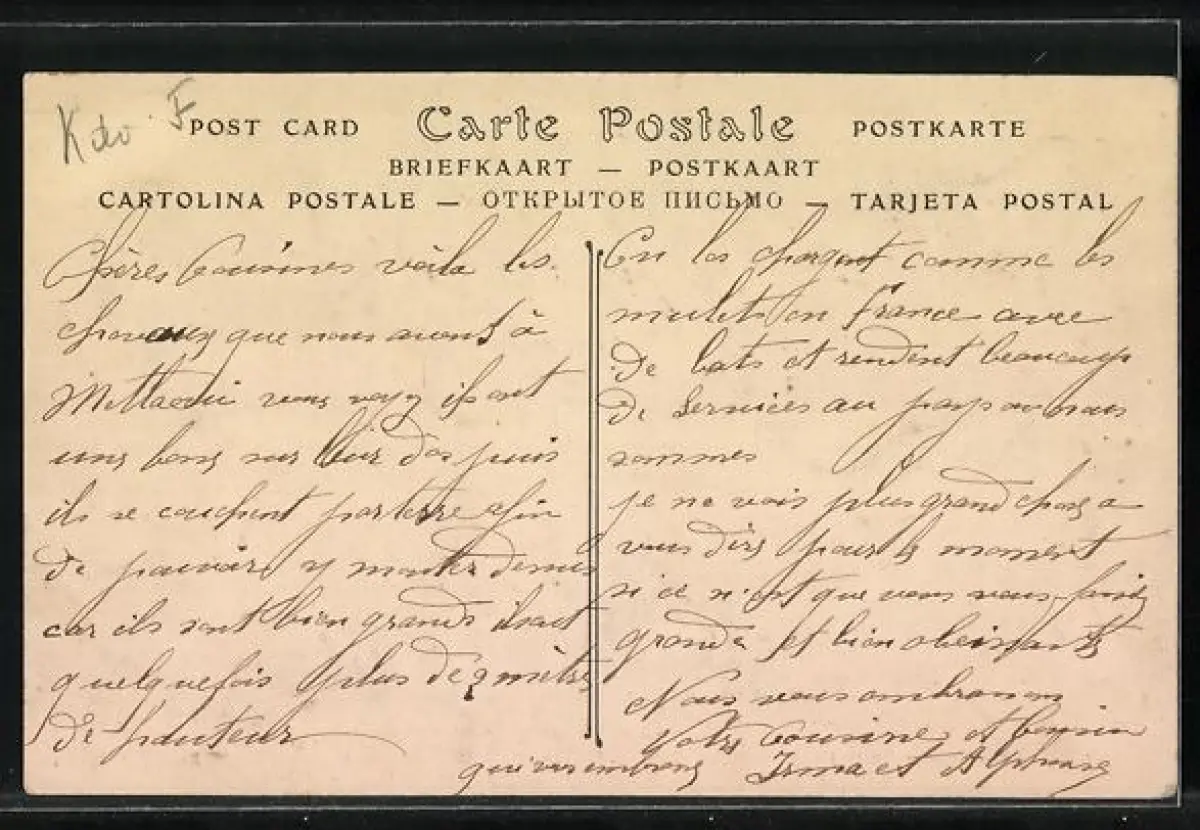 Kdo F
POST CARD Carte Postale POSTKARTE
BRIEFKAART — POSTKAART
CARTOLINA POSTALE — ОТКРЫТОЕ ПИСЬМО — TARJETA POSTAL
Chères Cousines voila les
chevaux que nous avons à
Metlaoui vous voyez ils ont
une bosse sur leur dos puis
ils se couchent parterre afin
de pouvoir y monter dessus
car ils sont bien grands ils ont
quelquefois plus de 2 mètres
de hauteur
On les chargent comme les
mulets en France avec
de bats et rendent beaucoup
de services au pays ou nous
sommes
je ne vois plus grand chose à
vous dire pour le moment
si ce n'est que vous vous
grande et bien obeissants
Nous vous embrassons
Votre Cousine et Cousin
qui vous embrasse Irma et Alphonse